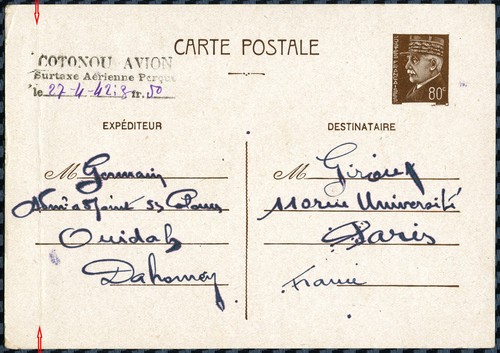 CARTE POSTALE
COTONOU AVION
Surtaxe Aérienne Perçue
le 27-4-42:8 fr. 50
80c
EXPÉDITEUR
M Germain
Adm adjoint Colonies
Ouidah
Dahomey
DESTINATAIRE
M Giroux
11 rue Université
Paris
France